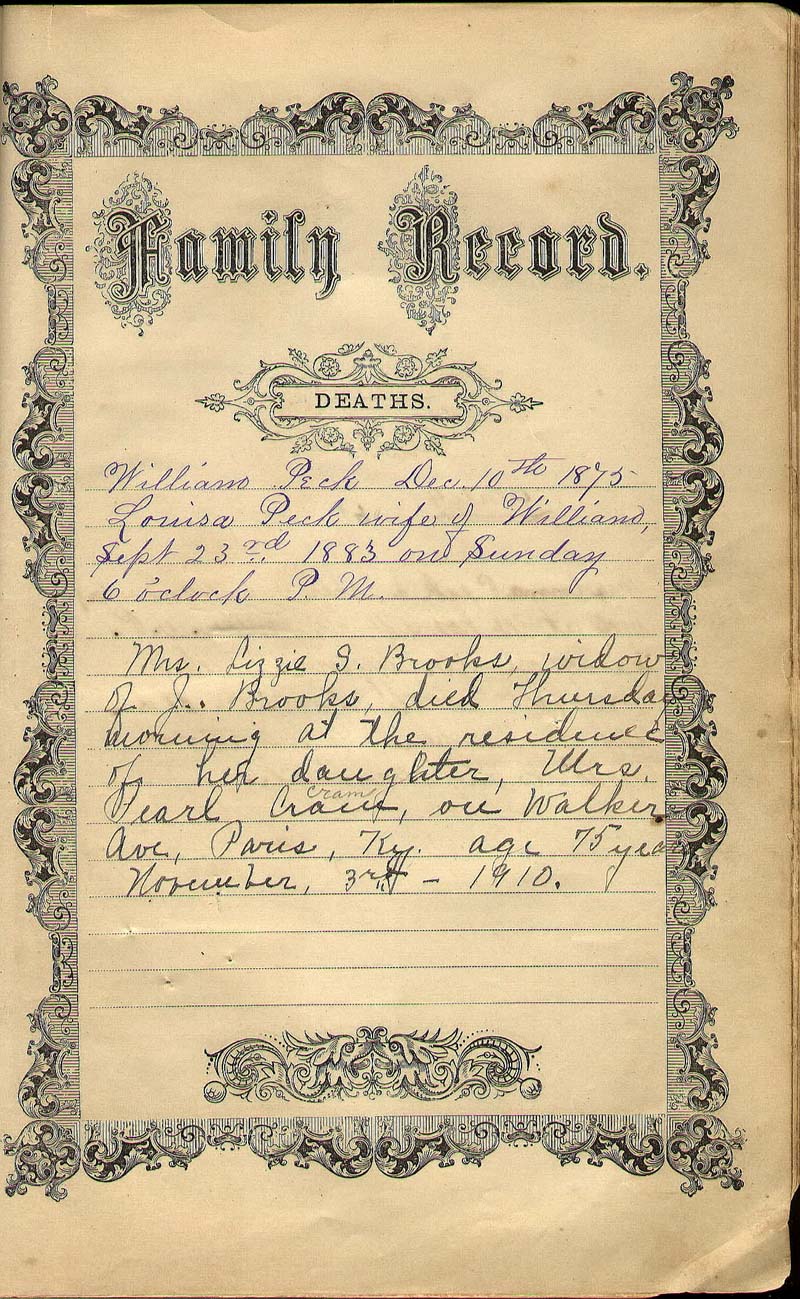 Family Record.
DEATHS.
William Peck Dec. 10th 1875
Louisa Peck wife of William,
Sept 23rd. 1883 on Sunday
6 o'clock P. M.
Mrs. Lizzie S. Brooks, widow
of J.. Brooks, died Thursday
morning at the residence
of her daughter, Mrs.
Cram
Pearl Cram, on Walker
Ave, Paris, Ky. age 75 year
November, 3rd - 1910.